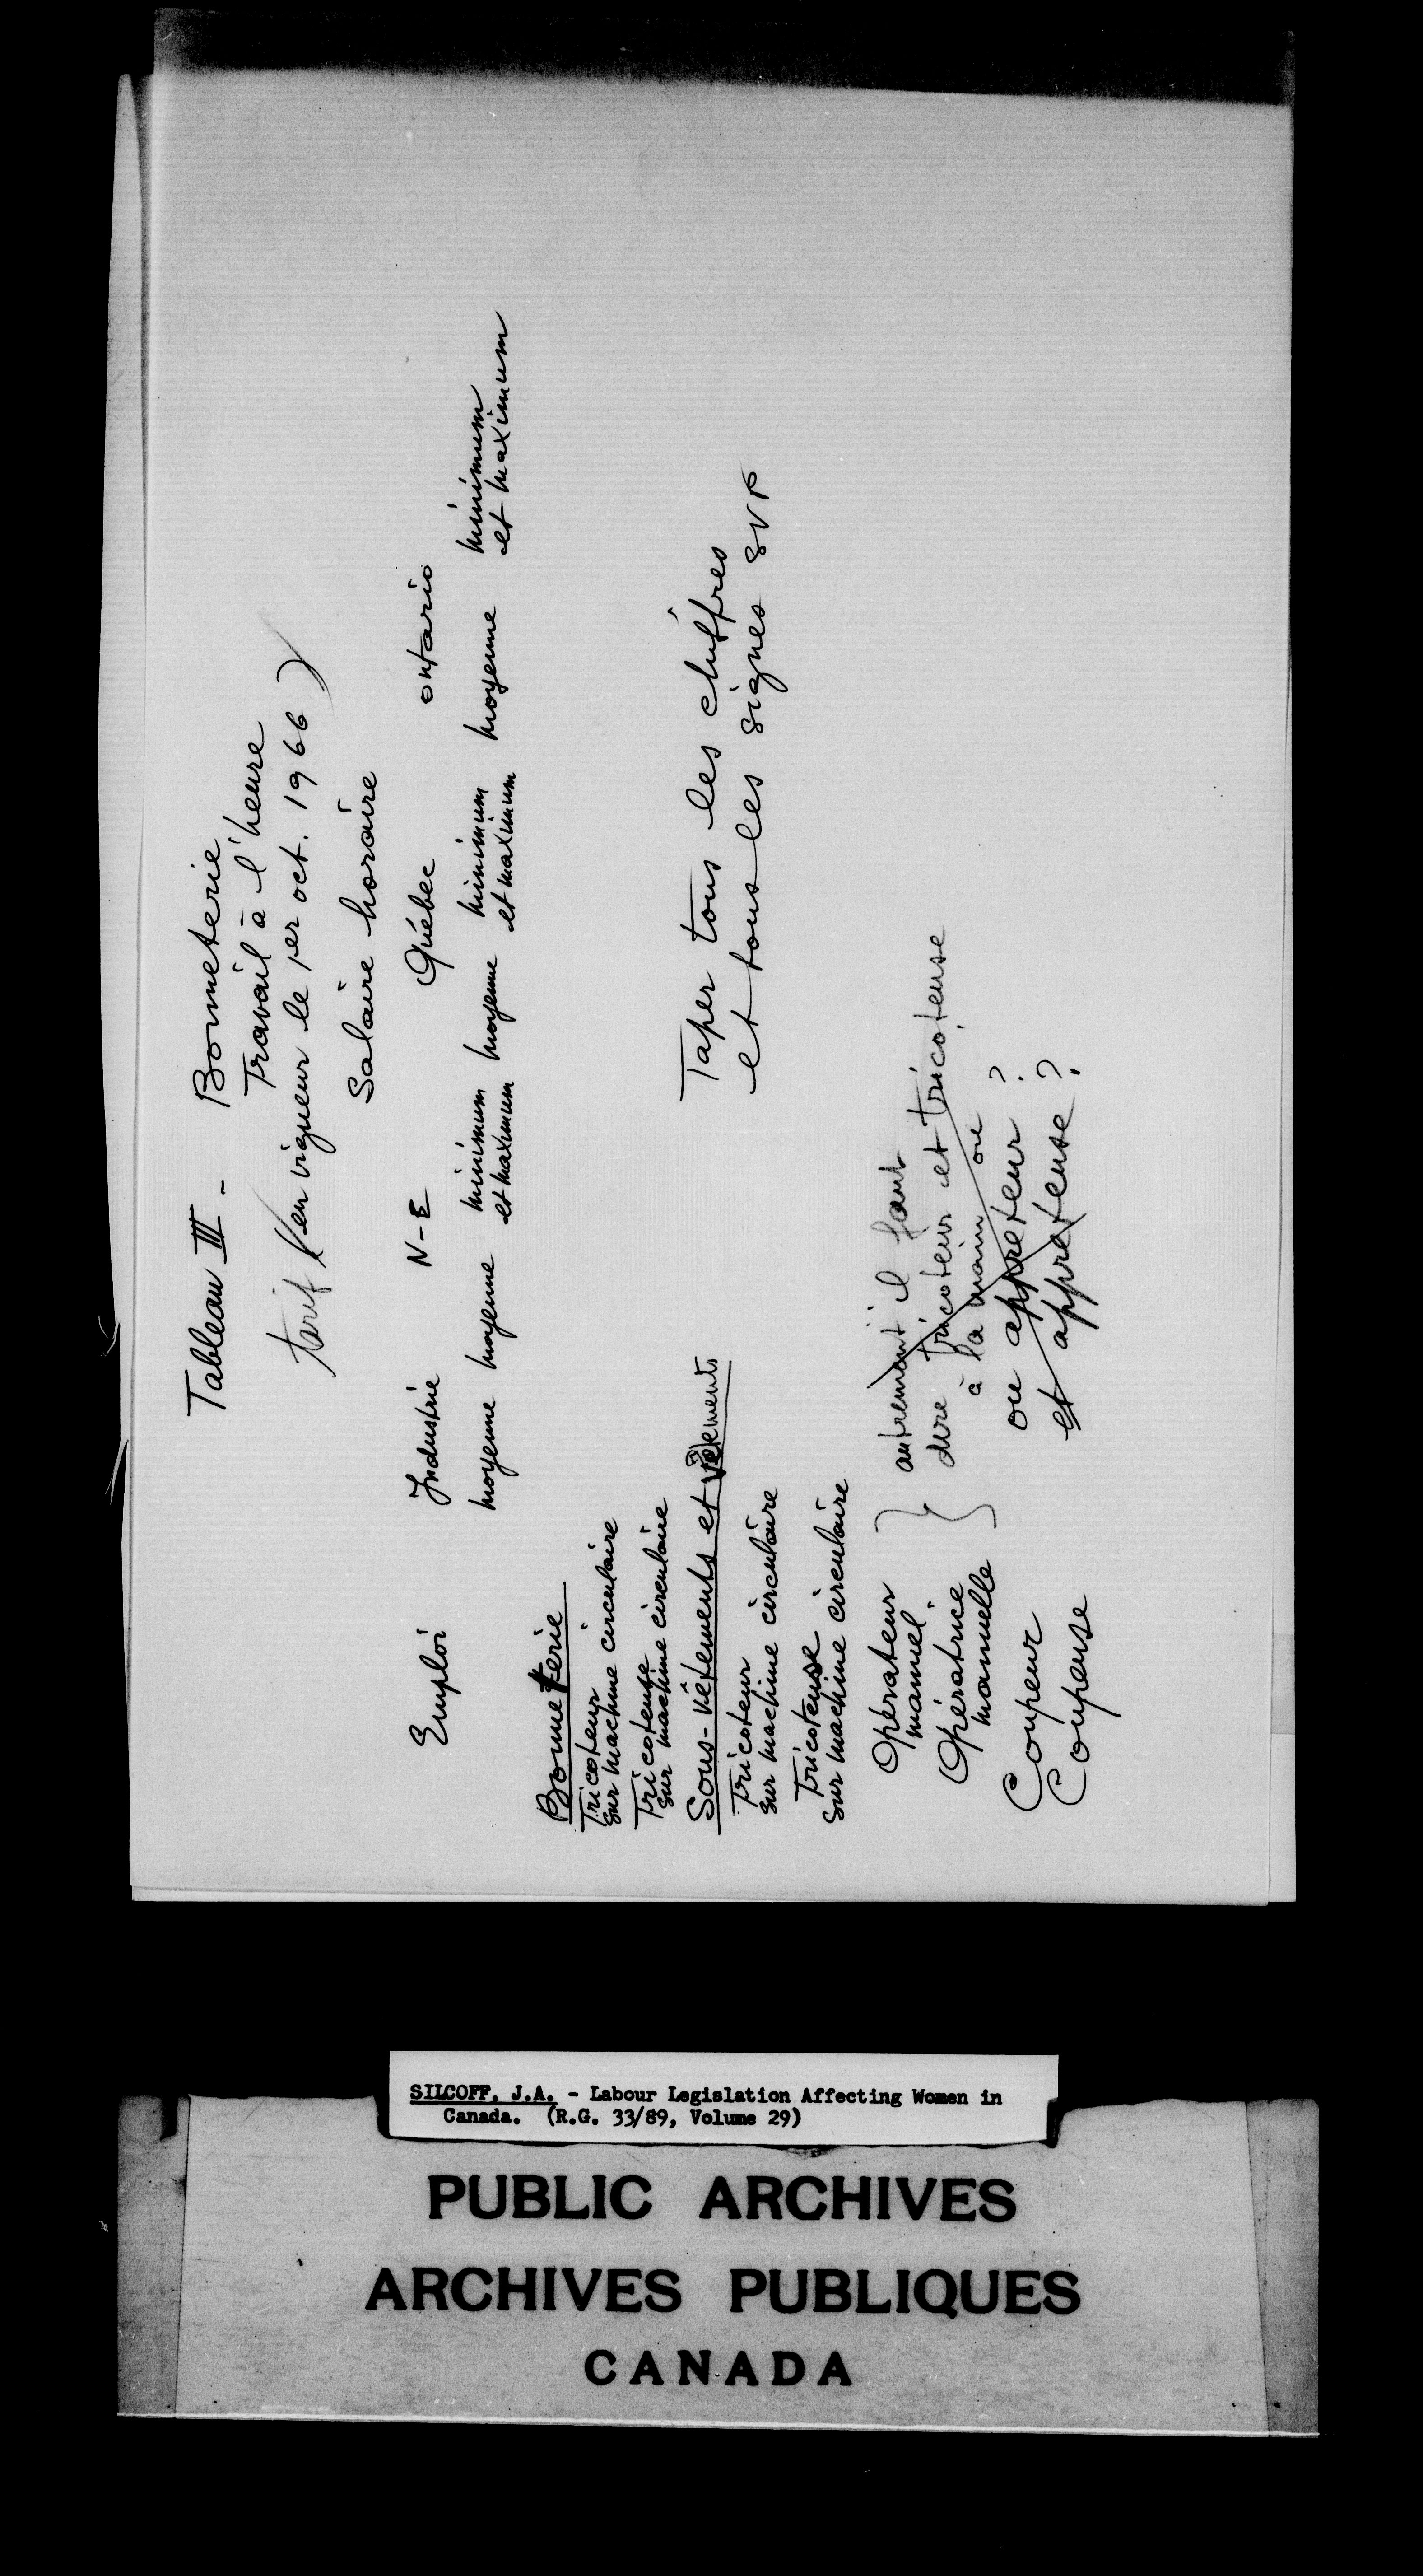 Tableau III - Bonneterie
Travail à l'heure
tarif (en vigueur le 1er oct. 1966)
Salaire horaire
Emploi Industrie N-E Québec Ontario
moyenne moyenne minimum moyenne minimum moyenne minimum
et maximum et maximum et maximum
Bonneterie
Tricoteur
sur machine circulaire
Tricoteuse
sur machine circulaire
Sous-vêtements et vêtements
Tricoteur
sur machine circulaire
Tricoteuse
sur machine circulaire
Taper tous les chiffres
et tous les signes SVP
Opérateur
manuel
Opératrice
manuelle
autrement il faut
dire tricoteur et tricoteuse
à la main ou
ou appreteur ?
et appreteuse ?
Coupeur
Coupeuse
SILCOFF, J.A. - Labour Legislation Affecting Women in
Canada. (R.G. 33/89, Volume 29)
PUBLIC ARCHIVES
ARCHIVES PUBLIQUES
CANADA